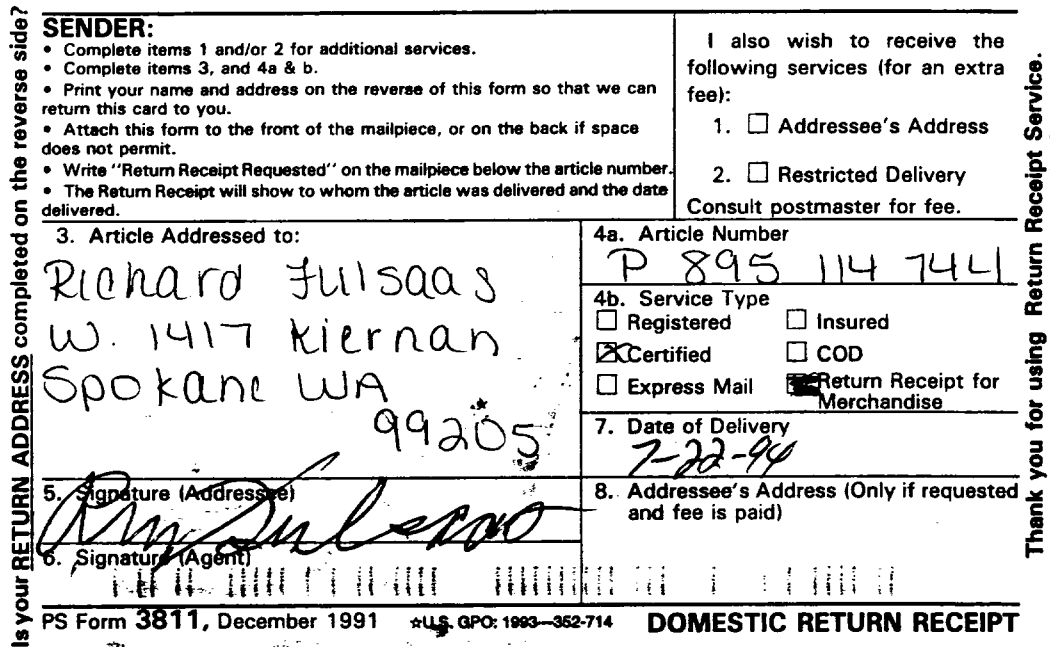 Is your RETURN ADDRESS completed on the reverse side?
SENDER:
• Complete items 1 and/or 2 for additional services.
• Complete items 3, and 4a & b.
• Print your name and address on the reverse of this form so that we can
return this card to you.
• Attach this form to the front of the mailpiece, or on the back if space
does not permit.
• Write "Return Receipt Requested" on the mailpiece below the article number.
• The Return Receipt will show to whom the article was delivered and the date
delivered.
I also wish to receive the
following services (for an extra
fee):
1. ☐ Addressee's Address
2. ☐ Restricted Delivery
Consult postmaster for fee.
3. Article Addressed to:
Richard Fulsaas
W. 1417 Kiernan
Spokane WA
99205
4a. Article Number
P 895 114 744
4b. Service Type
☐ Registered ☐ Insured
☒ Certified ☐ COD
☐ Express Mail Return Receipt for
Merchandise
7. Date of Delivery
7-22-94
5. Signature (Addressee)
6. Signature (Agent)
8. Addressee's Address (Only if requested
and fee is paid)
PS Form 3811, December 1991 ☆U.S. GPO: 1993—352-714 DOMESTIC RETURN RECEIPT
Thank you for using Return Receipt Service.